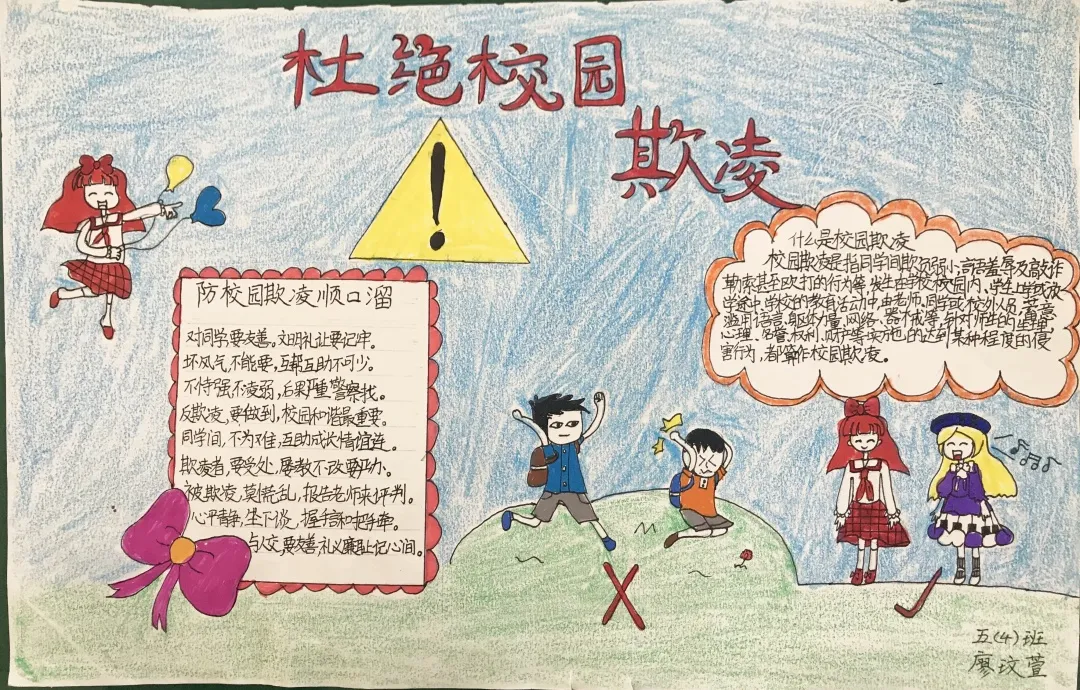 杜绝校园
欺凌
防校园欺凌顺口溜
对同学要友善。文明礼让要记牢。
坏风气,不能要,互帮互助不可少。
不恃强不凌弱,后果严重警察找。
反欺凌,要做到,校园和谐最重要。
同学间,不为难,互助成长情谊连。
欺凌者,要受处,屡教不改要严办。
被欺凌,莫慌乱,报告老师来评判。
心平静,坐下谈,握手言和把手牵。
与人交,要友善,礼义廉耻记心间。
什么是校园欺凌
校园欺凌是指同学间欺弱小,言语羞辱及敲诈
勒索甚至欧打的行为等,发生在学校校园内、学生上学或放
学途中、学校的教育活动中,由老师、同学或校外人员,蓄意
滥用语言、躯体力量、网络、器械等,针对师生的生理、
心理、名誉、权利、财产等实施的达到某种程度的侵
害行为,都算作校园欺凌。
五(4)班
廖玟萱